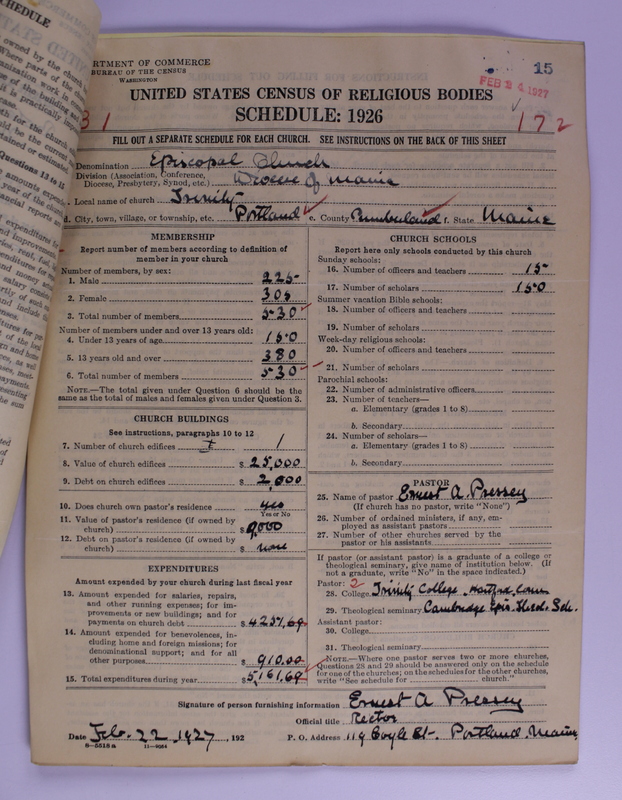 SCHEDULE
DEPARTMENT OF COMMERCE
BUREAU OF THE CENSUS
WASHINGTON
15
FEB 24 1927
UNITED STATES CENSUS OF RELIGIOUS BODIES
SCHEDULE: 1926
31
172
FILL OUT A SEPARATE SCHEDULE FOR EACH CHURCH. SEE INSTRUCTIONS ON THE BACK OF THIS SHEET
Denomination Episcopal Church
Division (Association, Conference,
Diocese, Presbytery, Synod, etc.) Diocese of Maine
Local name of church Trinity
d. City, town, village, or township, etc. Portland e. County Cumberland f. State Maine
MEMBERSHIP
Report number of members according to definition of
member in your church
Number of members, by sex:
1. Male 225
2. Female 305
3. Total number of members 530
Number of members under and over 13 years old:
4. Under 13 years of age 150
5. 13 years old and over 380
6. Total number of members 530
NOTE.—The total given under Question 6 should be the
same as the total of males and females given under Question 3.
CHURCH BUILDINGS
See instructions, paragraphs 10 to 12
7. Number of church edifices 1
8. Value of church edifices $ 25,000
9. Debt on church edifices $ 2,000
10. Does church own pastor's residence yes
Yes or No
11. Value of pastor's residence (if owned by
church) $ 9,000
12. Debt on pastor's residence (if owned by
church) $ none
EXPENDITURES
Amount expended by your church during last fiscal year
13. Amount expended for salaries, repairs,
and other running expenses; for im-
provements or new buildings; and for
payments on church debt $ 4251.69
14. Amount expended for benevolences, in-
cluding home and foreign missions; for
denominational support; and for all
other purposes $ 910.00
15. Total expenditures during year $ 5,161.69
CHURCH SCHOOLS
Report here only schools conducted by this church
Sunday schools:
16. Number of officers and teachers 15
17. Number of scholars 150
Summer vacation Bible schools:
18. Number of officers and teachers
19. Number of scholars
Week-day religious schools:
20. Number of officers and teachers
21. Number of scholars
Parochial schools:
22. Number of administrative officers
23. Number of teachers—
a. Elementary (grades 1 to 8)
b. Secondary
24. Number of scholars—
a. Elementary (grades 1 to 8)
b. Secondary
PASTOR
25. Name of pastor Ernest A. Pressey
(If church has no pastor, write "None")
26. Number of ordained ministers, if any, em-
ployed as assistant pastors
27. Number of other churches served by the
pastor or his assistants
If pastor (or assistant pastor) is a graduate of a college or
theological seminary, give name of institution below. (If
not a graduate, write "No" in the space indicated.)
Pastor: 2
28. College Trinity College, Hartford, Conn
29. Theological seminary Cambridge Epis. Theol. Sch.
Assistant pastor:
30. College
31. Theological seminary
NOTE.—Where one pastor serves two or more churches,
Questions 28 and 29 should be answered only on the schedule
for one of the churches; on the schedules for the other churches,
write "See schedule for church."
Signature of person furnishing information Ernest A Pressey
Official title Rector
Date Feb. 22, 1927, 192 P. O. Address 119 Coyle St. Portland, Maine
8-5518a 11-9064